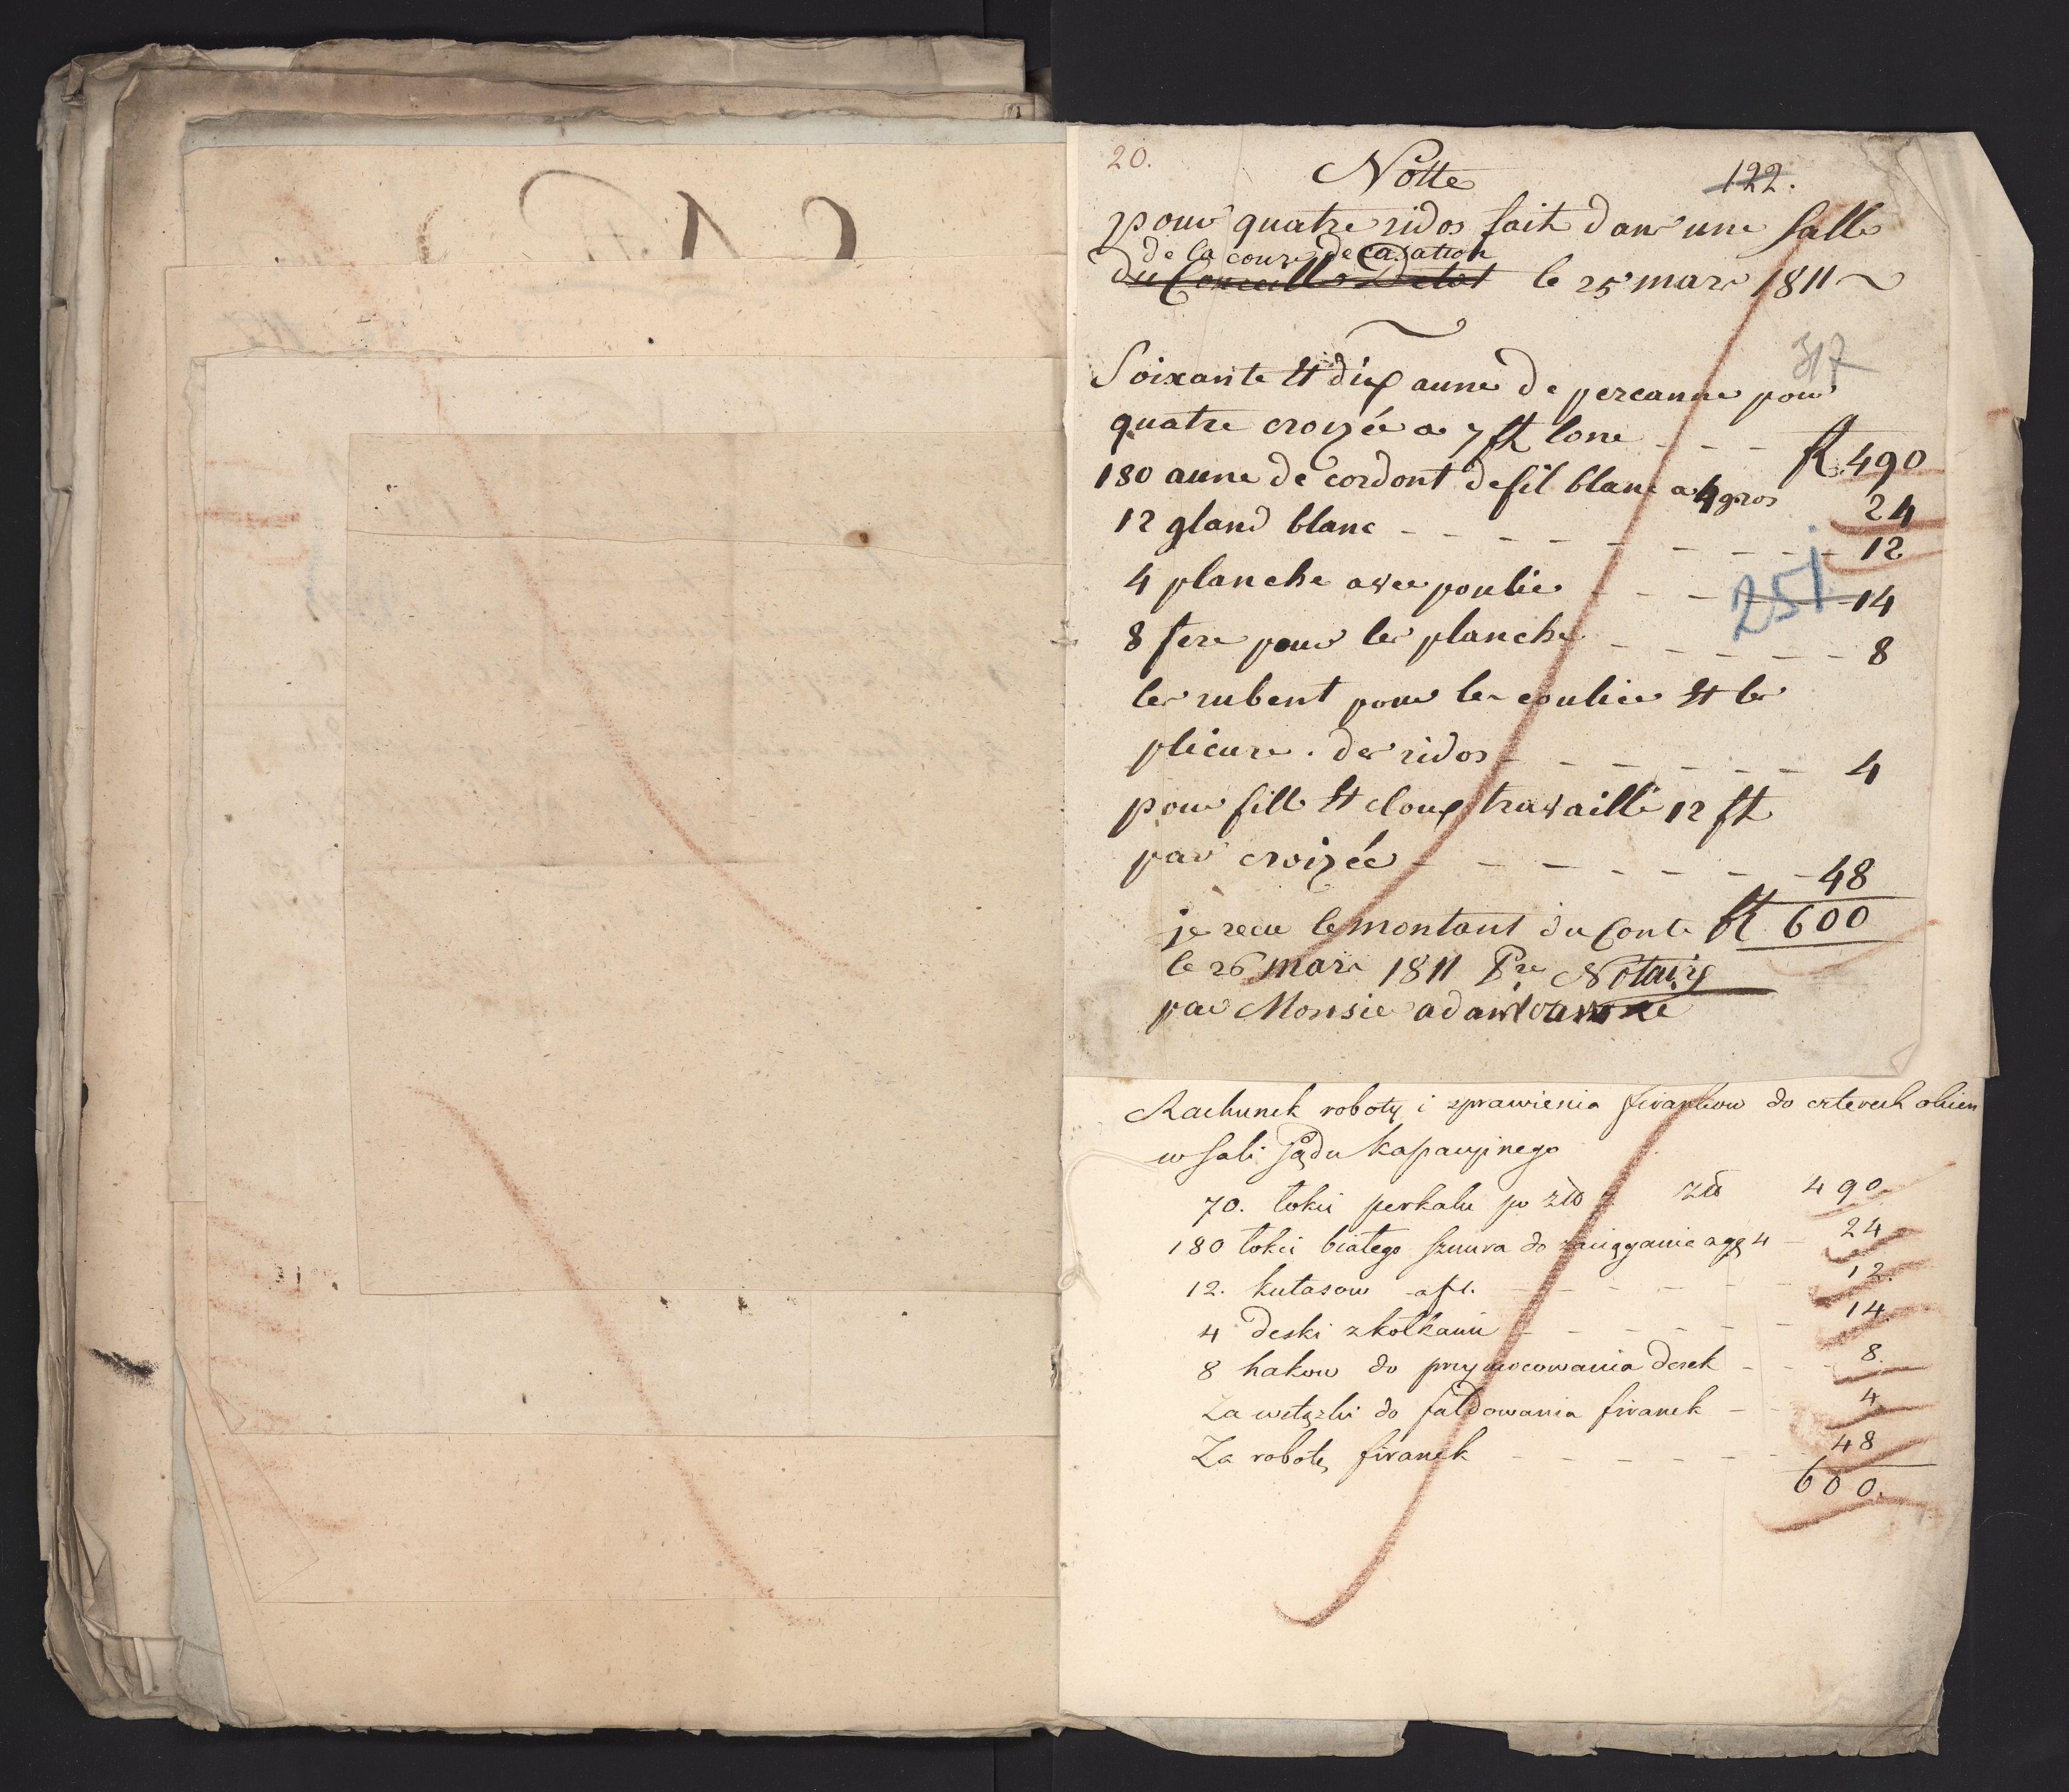 20.
Notte
122.
pour quatre ridos fait dans une salle
de la cour de Casation
du Conceille Detat le 25 mars 1811
317
Soixante et dix aune de percanne pour
quatre croizée a 7 ft lone - - - ft 490
180 aune de cordont de fil blanc a 4 gros 24
12 gland blanc - - - - - - - - - 12
4 planche avec poulie - - - 14
251
8 fere pour les planche - - - - - - 8
les rubent pour les coulice et les
plicure . des ridos - - - - - - - 4
pour fille et cloux travaille 12 ft
par croizée - - - - - - - 48
je recu le montant du Conte ft 600
le 26 mars 1811 Pre Notaig
par Monsie
Rachunek roboty i sprawienia firankow do czterech okien
w sali Sądu Kassacyjnego
70. łokci perkalu po złp 7 złp 490
180 łokci białego sznura do zaciągania a gr 4 - 24
12. kutasow a f 1. - - - - - - 12.
4 deski z kołkami - - - - - - - 14.
8 hakow do przymocowania desek - - - 8.
Za wstążki do fałdowania firanek - - 4.
Za robotę firanek - - - - - - - 48
600.